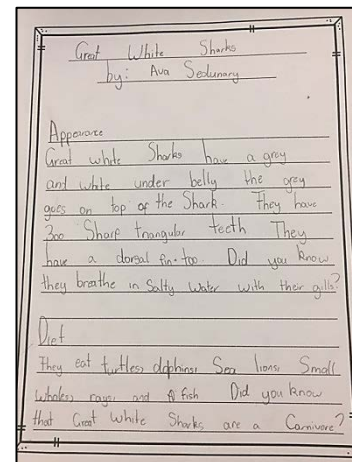 Great White Sharks
by: Ava Sedunary
Appearance
Great white Sharks have a grey
and white under belly the grey
goes on top of the Shark. They have
300 Sharp triangular teeth They
have a dorsal fin too. Did you know
they breathe in Salty Water with their gills?
Diet
They eat turtles, dolphins, Sea lions, Small
whales, rays, and fish Did you know
that Great White Sharks are a Carnivore?